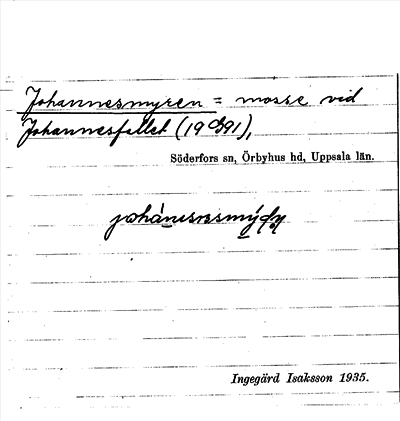 Johannesmyren = mosse vid
Johannesfallet (19
Söderfors sn, Örbyhus hd, Uppsala län.
Ingegärd Isaksson 1935.